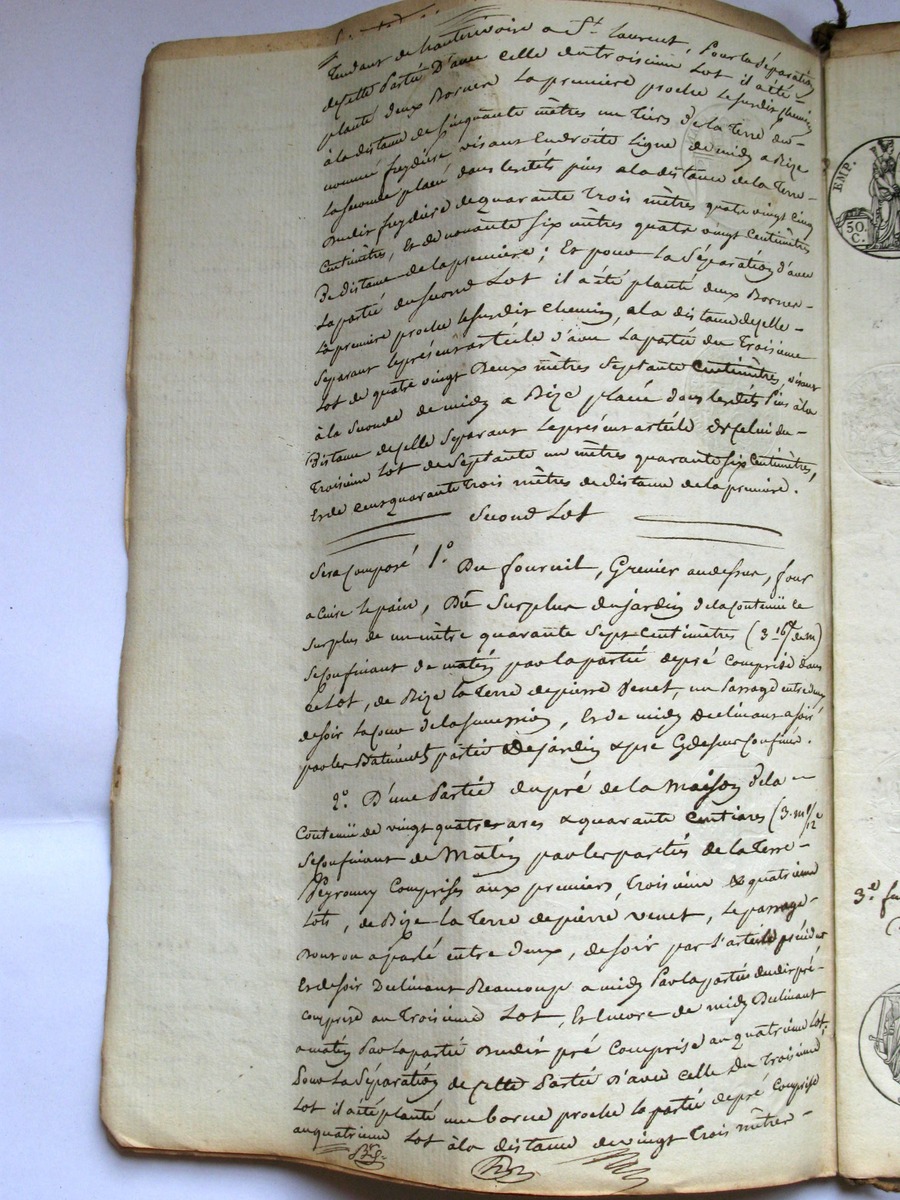 Tendant de hauterivoire a St. Laurent, Pour la Séparation
de cette Partie D'avec celle du troisieme Lot il a été
planté deux Bornes La premiere proche le susdit chemin
à la distance de Cinquante mètres un Tiers de la Terre du
nommé freydiere, visant En droite Ligne de midy a Bize
la seconde placée dans les dits pins a la distance de la Terre
Dudit freydiere de quarante Trois mètres quatre vingt cinq
Centimètres, Et de nonante six mètres quatre vingt Centimètres
De distance de la premiere; Et pour La Séparation d'avec
La partie du second Lot il a été planté deux Bornes
La premiere proche le susdit chemin, a la distance de celle
Séparant le présent article d'avec La partie du Troisieme
Lot de quatre vingt Deux mètres Septante Centimètres, visant
à la Seconde de midy a Bize placée dans les dits Pins à la
Distance de celle Séparant le présent article de celui du
Troisieme Lot de Septante un mètres quarante six Centimètres,
Et de cent quarante Trois mètres de distance de la premiere.
Second Lot
Sera Composé 1o. Du fournil, Grenier au dessus, four
a Cuire le pain, Du Surplus du jardin de la Contenüe le
surplus de un mètre quarante Sept Centimètres
Se Confinant de matin par la partie de pré Comprise dans
ce Lot, de Bize la Terre de pierre Venet, un Passage entre deux
de soir La Cour de la succession, Et de midy declinant a soir
par les Batiments partie de jardin & pré Cy dessus Confiné.
2o. D'une Partie du pré de la Maison de la
Contenüe de vingt quatre ares & quarante Centiares (3. m 1/12e
Se Confinant de Matin par les parties de la Terre
Peyroury Comprises aux premiers, Troisieme & quatrieme
Lots, de Bize la Terre de pierre Venet, le passage
Dont on a parlé entre Deux, de soir par l'article précedent
Et de soir Declinant Beaucoup a midy Par la partie dudit pré
comprise au Troisieme Lot, Et Encore de midy Declinant
a matin Par la partie Dudit pré Comprise au quatrieme Lot,
Pour La Séparation de cette Partie D'avec celle Du Troisieme
Lot il a été planté une borne proche la partie de pré Comprise
au quatrieme Lot à la distance de vingt Trois mètres
EMP.
50.
C.
3.e